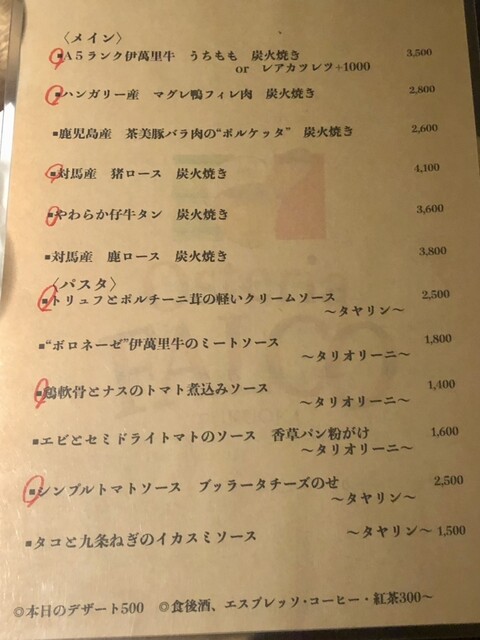 〈メイン〉
■A5ランク伊萬里牛　うちもも　炭火焼き　3,500
or　レアカツレツ+1000
■ハンガリー産　マグレ鴨フィレ肉　炭火焼き　2,800
■鹿児島産　茶美豚バラ肉の“ポルケッタ”　炭火焼き　2,600
■対馬産　猪ロース　炭火焼き　4,100
■やわらか仔牛タン　炭火焼き　3,600
■対馬産　鹿ロース　炭火焼き　3,800
〈パスタ〉
■トリュフとポルチーニ茸の軽いクリームソース　2,500
～タヤリン～
■“ボロネーゼ”伊萬里牛のミートソース　1,800
～タリオリーニ～
■鶏軟骨とナスのトマト煮込みソース　1,400
～タリオリーニ～
■エビとセミドライトマトのソース　香草パン粉がけ　1,600
～タリオリーニ～
■シンプルトマトソース　ブッラータチーズのせ　2,500
～タヤリン～
■タコと九条ねぎのイカスミソース　～タヤリン～ 1,500
◎本日のデザート500　◎食後酒、エスプレッソ・コーヒー・紅茶300～